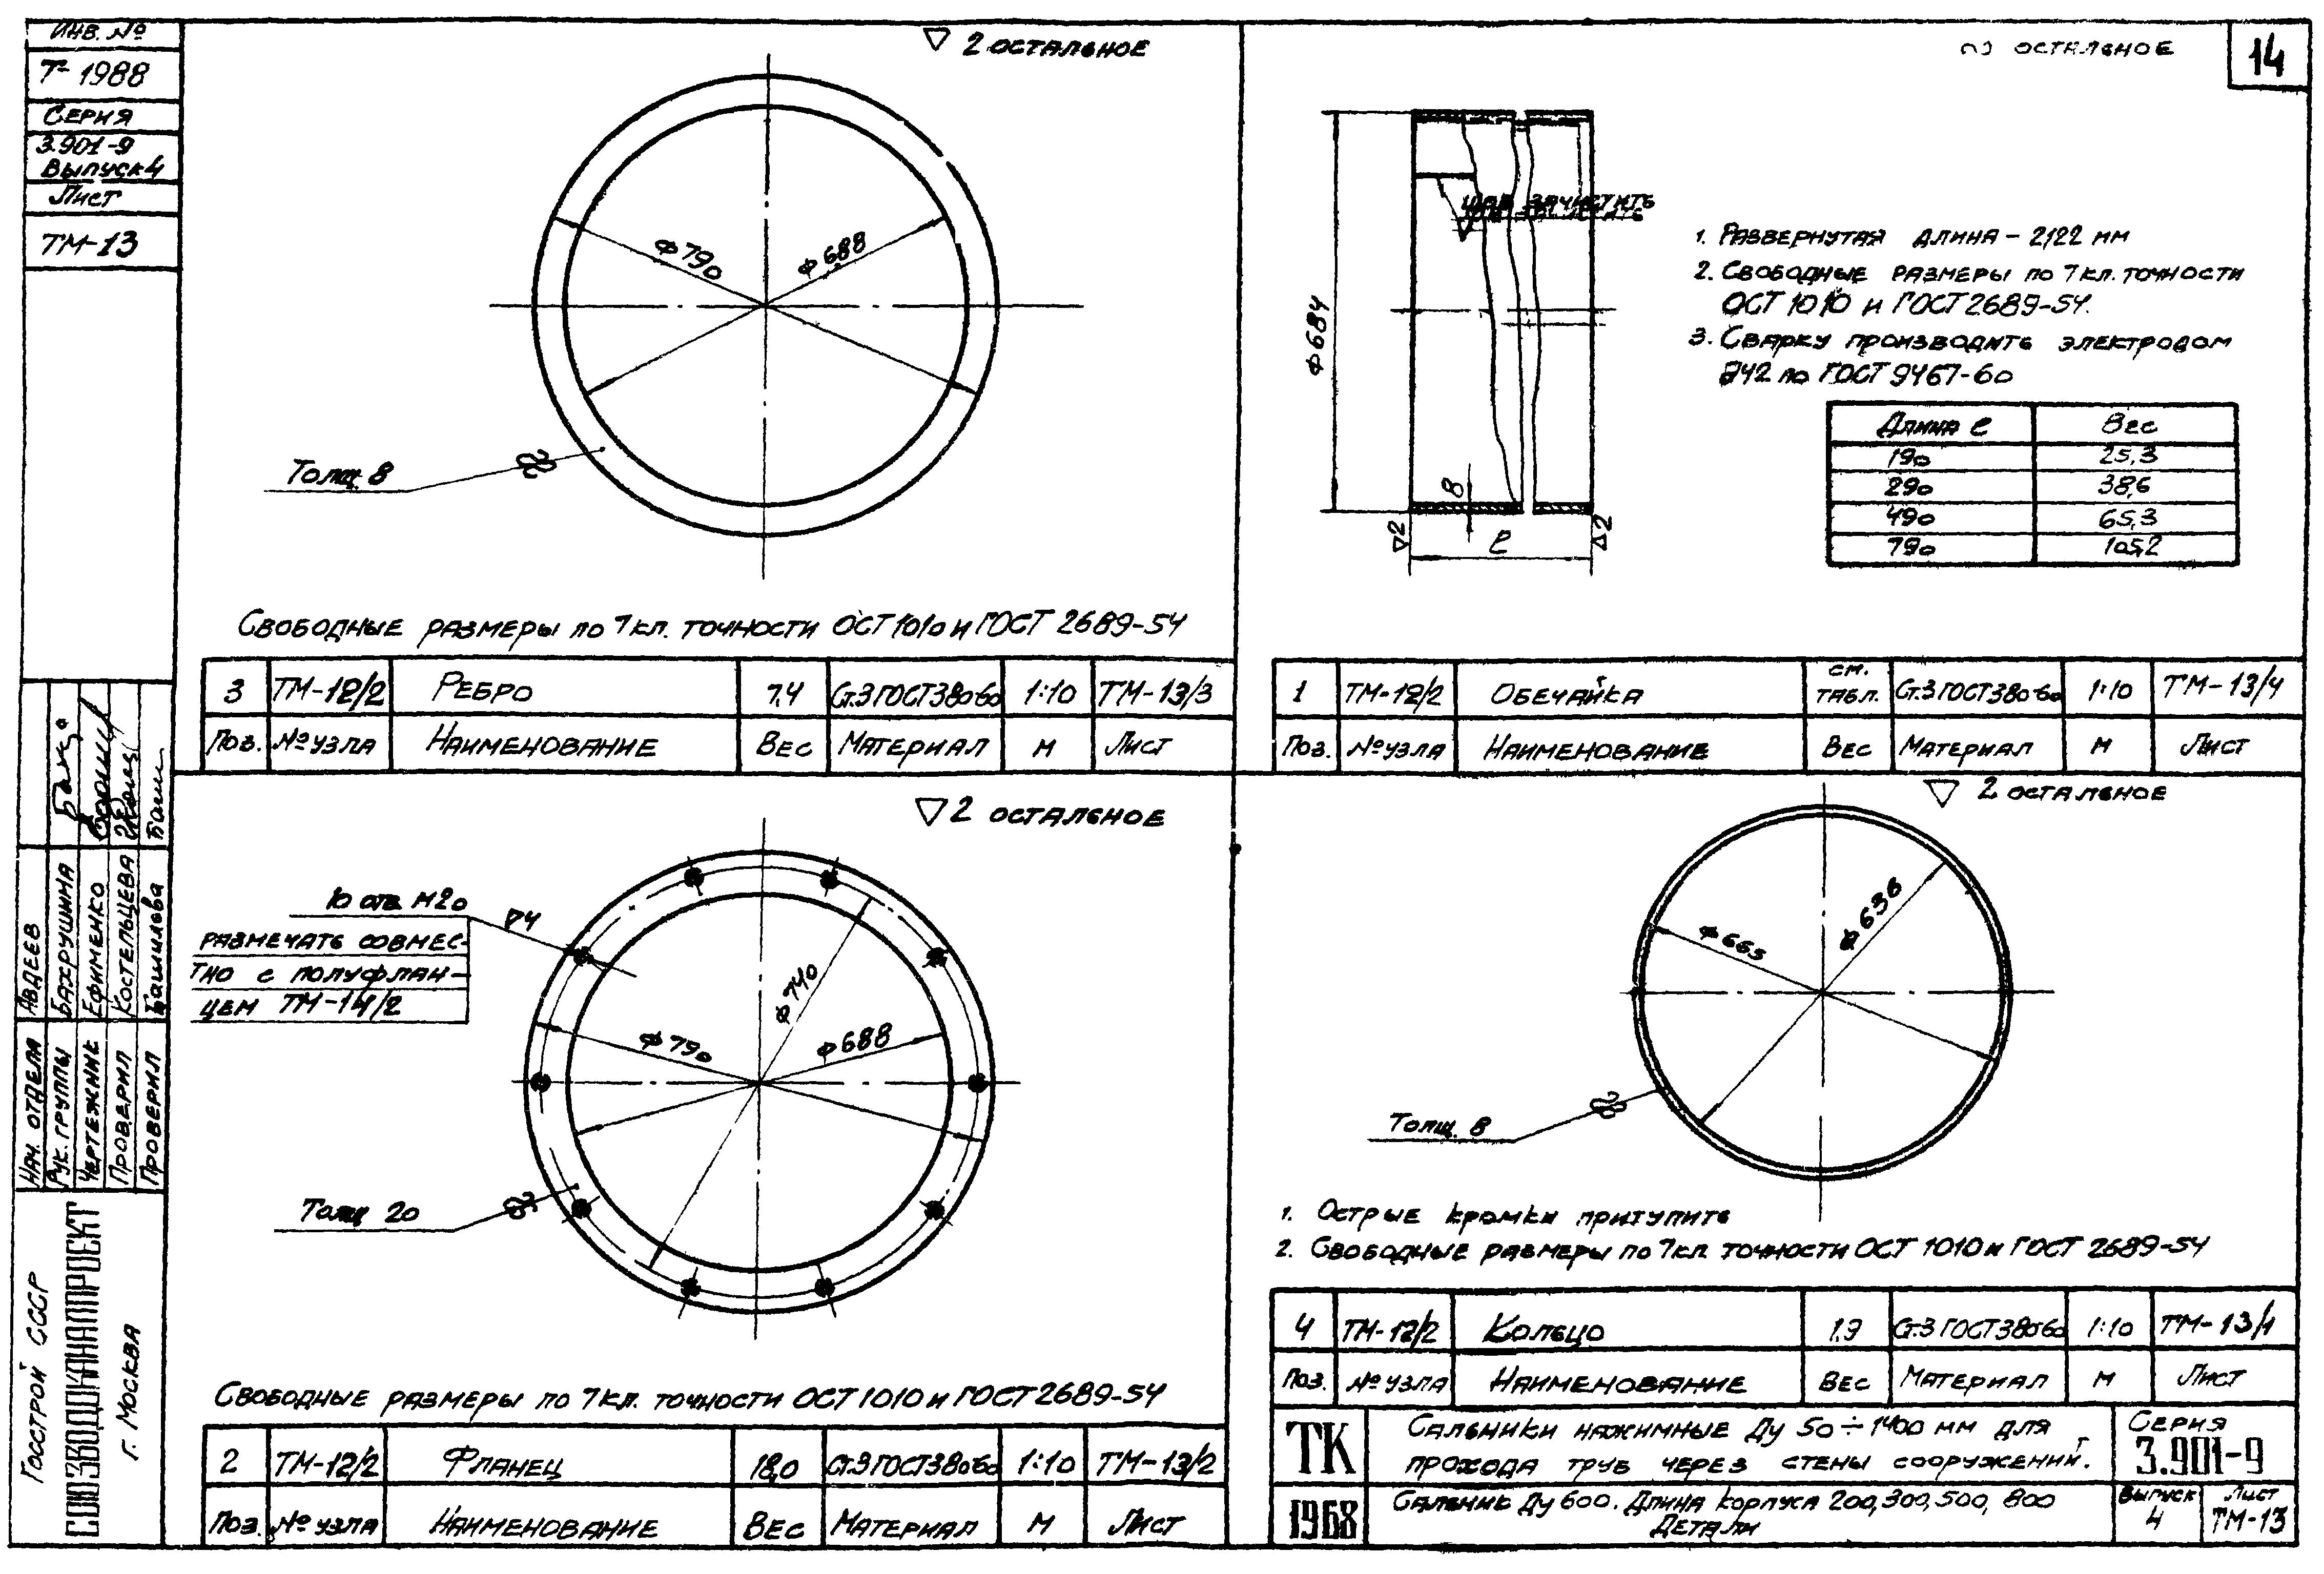 Инв. №
Т-1988
Серия
3.901-9
Выпуск 4
Лист
ТМ-13
▽ 2 остальное
ф 790
ф 688
Толщ. 8
Свободные размеры по 7 кл. точности ОСТ 1010 и ГОСТ 2689-54
3 ТМ-12/2 Ребро 7,4 Ст.3 ГОСТ 380-60 1:10 ТМ-13/3
Поз. № узла Наименование Вес Материал М Лист
остальное
14
ф 684
шов зачистить
8
▽2
ℓ
▽2
1. Развернутая длина - 2122 мм
2. Свободные размеры по 7 кл. точности
ОСТ 1010 и ГОСТ 2689-54.
3. Сварку производить электродом
Э42 по ГОСТ 9467-60
Длина ℓ Вес
190 25,3
290 38,6
490 65,3
790 105,2
1 ТМ-12/2 Обечайка см. табл. Ст.3 ГОСТ 380-60 1:10 ТМ-13/4
Поз. № узла Наименование Вес Материал М Лист
▽ 2 остальное
10 отв. М20
▽4
размечать совмес-
тно с полуфлан-
цем ТМ-14/2
ф 740
ф 790
ф 688
Толщ 20
Свободные размеры по 7 кл. точности ОСТ 1010 и ГОСТ 2689-54
2 ТМ-12/2 Фланец 18,0 Ст.3 ГОСТ 380-60 1:10 ТМ-13/2
Поз. № узла Наименование Вес Материал М Лист
▽ 2 остальное
ф 665
ф 636
Толщ. 8
1. Острые кромки притупить
2. Свободные размеры по 7 кл. точности ОСТ 1010 и ГОСТ 2689-54
4 ТМ-12/2 Кольцо 1.9 Ст.3 ГОСТ 380-60 1:10 ТМ-13/1
Поз. № узла Наименование Вес Материал М Лист
ТК
1968
Сальники нажимные Ду 50÷1400 мм для
прохода труб через стены сооружений.
Сальник Ду 600. Длина корпуса 200, 300, 500, 800
Детали
Серия
3.901-9
Выпуск
4
Лист
ТМ-13
Нач. отдела Авдеев
Рук. группы Бахрушина
Чертежник Ефименко
Проверил Костельцева
Проверил Башилова
Госстрой СССР
СОЮЗВОДОКАНАЛПРОЕКТ
г. Москва